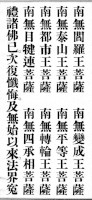 南無閻羅王菩薩　南無變成王菩薩
南無泰山王菩薩　南無平等王菩薩
南無都市王菩薩　南無轉輪王菩薩
南無目犍連菩薩　南無四承相菩薩
禮諸佛已次復懺悔及無始以來法界寃